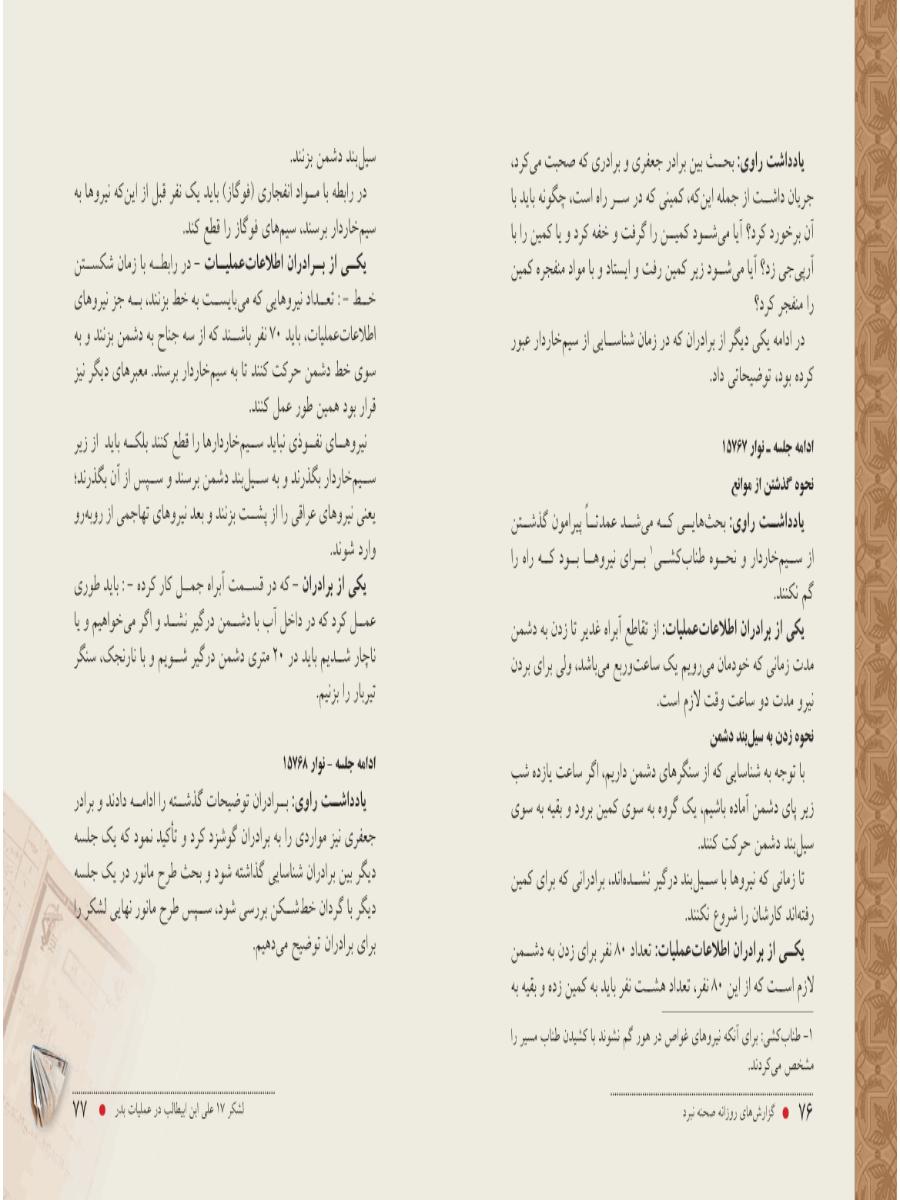 یادداشت راوی: بحث بین برادر جعفری و برادری که صحبت می‌کرد،
جریان داشت از جمله این‌که، کمینی که در سر راه است، چگونه باید با
آن برخورد کرد؟ آیا می‌شود کمین را گرفت و خفه کرد و یا کمین را با
آرپی‌جی زد؟ آیا می‌شود زیر کمین رفت و ایستاد و با مواد منفجره کمین
را منفجر کرد؟
در ادامه یکی دیگر از برادران که در زمان شناسایی از سیم‌خاردار عبور
کرده بود، توضیحاتی داد.
ادامه جلسه ـ نوار ۱۵۷۶۷
نحوه گذشتن از موانع
یادداشت راوی: بحث‌هایی که می‌شد عمدتاً پیرامون گذشتن
از سیم‌خاردار و نحوه طناب‌کشی۱ برای نیروها بود که راه را
گم نکنند.
یکی از برادران اطلاعات‌عملیات: از تقاطع آبراه غدیر تا زدن به دشمن
مدت زمانی که خودمان می‌رویم یک ساعت‌وربع می‌باشد، ولی برای بردن
نیرو مدت دو ساعت وقت لازم است.
نحوه زدن به سیل‌بند دشمن
با توجه به شناسایی که از سنگرهای دشمن داریم، اگر ساعت یازده شب
زیر پای دشمن آماده باشیم، یک گروه به سوی کمین برود و بقیه به سوی
سیل‌بند دشمن حرکت کنند.
تا زمانی که نیروها با سیل‌بند درگیر نشده‌اند، برادرانی که برای کمین
رفته‌اند کارشان را شروع نکنند.
یکی از برادران اطلاعات‌عملیات: تعداد ۸۰ نفر برای زدن به دشمن
لازم است که از این ۸۰ نفر، تعداد هشت نفر باید به کمین زده و بقیه به
۱- طناب‌کشی: برای آنکه نیروهای غواص در هور گم نشوند با کشیدن طناب مسیر را
مشخص می‌کردند.
۷۶ ● گزارش‌های روزانه صحنه نبرد
سیل‌بند دشمن بزنند.
در رابطه با مواد انفجاری (فوگاز) باید یک نفر قبل از این‌که نیروها به
سیم‌خاردار برسند، سیم‌های فوگاز را قطع کند.
یکی از برادران اطلاعات‌عملیات - در رابطه با زمان شکستن
خط - : تعداد نیروهایی که می‌بایست به خط بزنند، به جز نیروهای
اطلاعات‌عملیات، باید ۷۰ نفر باشند که از سه جناح به دشمن بزنند و به
سوی خط دشمن حرکت کنند تا به سیم‌خاردار برسند. معبرهای دیگر نیز
قرار بود همین طور عمل کنند.
نیروهای نفوذی نباید سیم‌خاردارها را قطع کنند بلکه باید از زیر
سیم‌خاردار بگذرند و به سیل‌بند دشمن برسند و سپس از آن بگذرند؛
یعنی نیروهای عراقی را از پشت بزنند و بعد نیروهای تهاجمی از روبه‌رو
وارد شوند.
یکی از برادران - که در قسمت آبراه جمل کار کرده - : باید طوری
عمل کرد که در داخل آب با دشمن درگیر نشد و اگر می‌خواهیم و یا
ناچار شدیم باید در ۲۰ متری دشمن درگیر شویم و با نارنجک، سنگر
تیربار را بزنیم.
ادامه جلسه - نوار ۱۵۷۶۸
یادداشت راوی: برادران توضیحات گذشته را ادامه دادند و برادر
جعفری نیز مواردی را به برادران گوشزد کرد و تأکید نمود که یک جلسه
دیگر بین برادران شناسایی گذاشته شود و بحث طرح مانور در یک جلسه
دیگر با گردان خط‌شکن بررسی شود، سپس طرح مانور نهایی لشکر را
برای برادران توضیح می‌دهیم.
لشکر ۱۷ علی ابن ابیطالب در عملیات بدر ● ۷۷